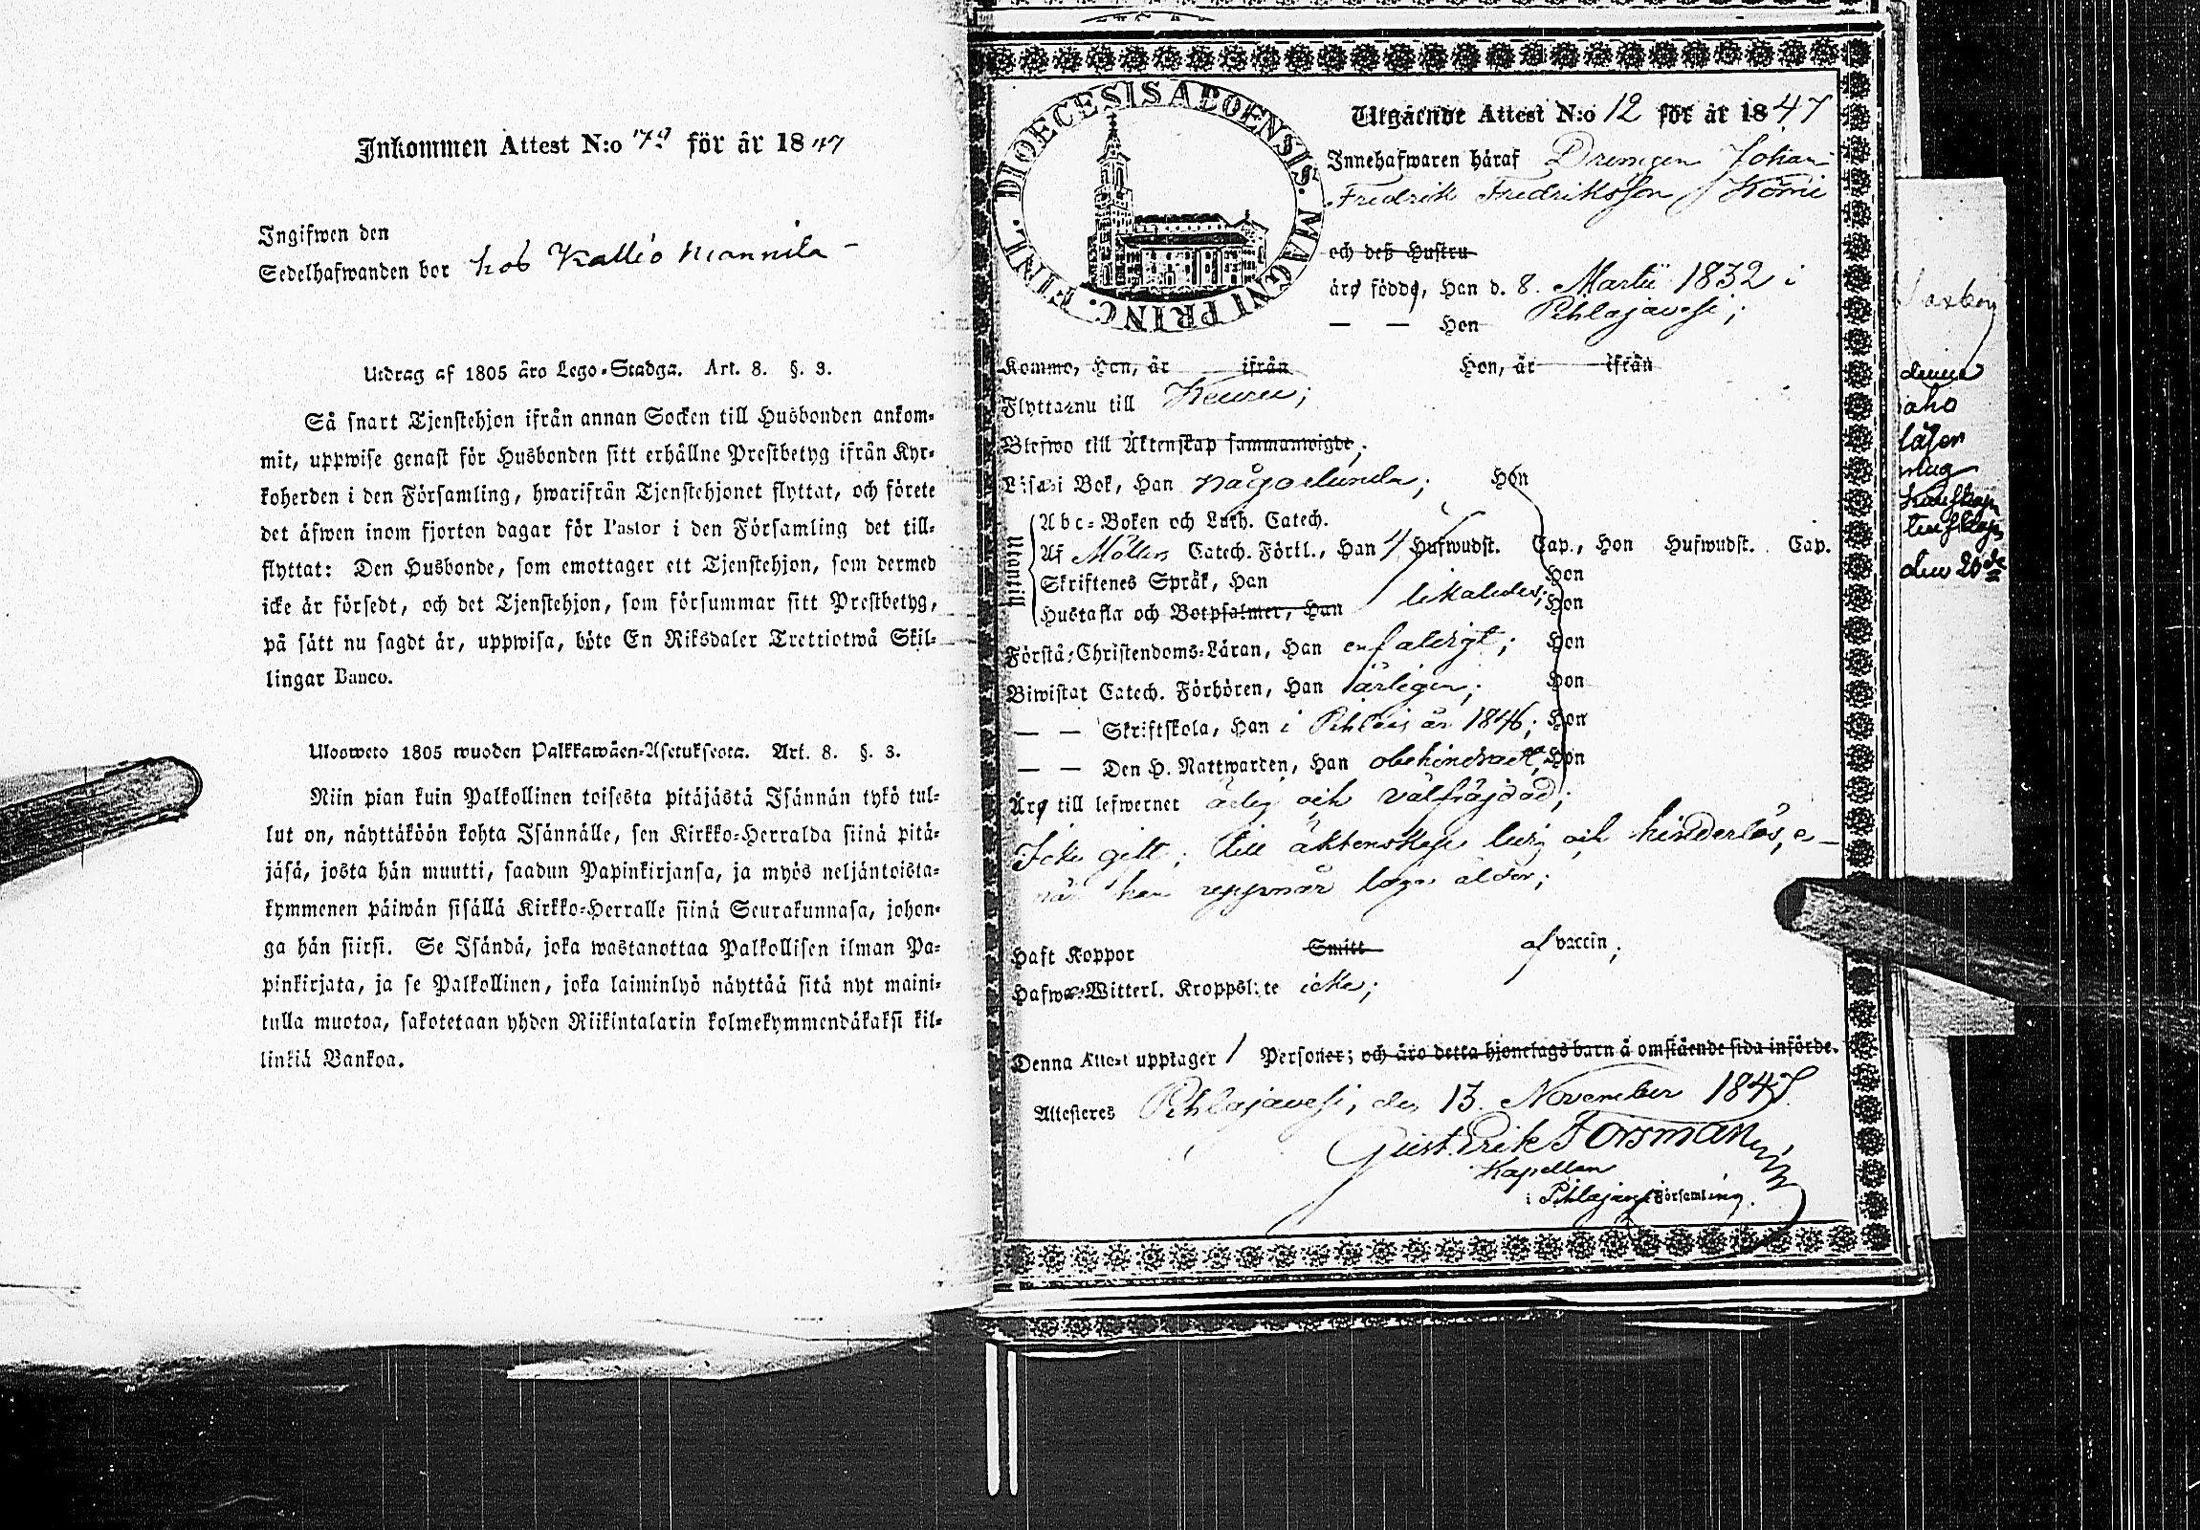 Inkommen Attest N:o 79 för år 1847
Ingifwen den
Sedelhafwanden bor hos Kallio Mannila –
Utdrag af 1805 års Lego-Stadga. Art. 8. §. 3.
Så snart Tjenstehjon ifrån annan Socken till Husbonden ankom-
mit, uppwise genast för Husbonden sitt erhållne Prestbetyg ifrån Kyr-
koherden i den Församling, hwarifrån Tjenstehjonet flyttat, och förete
det äfwen inom fjorton dagar för Pastor i den Församling det till-
flyttat: Den Husbonde, som emottager ett Tjenstehjon, som dermed
icke är försedt, och det Tjenstehjon, som försummar sitt Prestbetyg,
på sätt nu sagdt är, uppwisa, böte En Riksdaler Trettiotwå Skil-
lingar Banco.
Ulosweto 1805 wuoden Palkkawäen-Asetuksesta. Art. 8. §. 3.
Niin pian kuin Palkollinen toisesta pitäjästä Isännän tykö tul-
lut on, näyttäköön kohta Isännälle, sen Kirkko-Herralda siinä pitä-
jäsä, josta hän muutti, saadun Papinkirjansa, ja myös neljäntoista-
kymmenen päiwän sisällä Kirkko-Herralle siinä Seurakunnasa, johon-
ga hän siirsi. Se Isändä, joka wastanottaa Palkollisen ilman Pa-
pinkirjata, ja se Palkollinen, joka laiminlyö näyttää sitä nyt maini-
tulla muotoa, sakotetaan yhden Riikintalarin kolmekymmendäkaksi kil-
linkiä Bankoa.
DIOECESIS ABOENSIS. MAGNI PRINC. FINL.
Utgående Attest N:o 12 för år 1847
Innehafwaren häraf Drengen Johan
Fredrik Fredriksson Körri
och deß Hustru
äro födde, Han d. 8. Martii 1832 i
— — Hon Pihlajavesi;
Komme, Han, år ifrån Hon, år ifrån
Flytta nu till Keuru;
Blefwo till Äktenskap sammanwigde;
Läsa i Bok, Han någorlunda; Hon
Utantill
Abc-Boken och Luth. Catech.
Af Möllers Catech. Förkl., Han 4 Hufwudst. Cap., Hon Hufwudst. Cap.
Skriftenes Språk, Han Hon
Hustafla och Botpsalmer, Han likaledes; Hon
Förstå Christendoms-Läran, Han enfaldigt; Hon
Biwistat Catech. Förhören, Han årligen; Hon
— — Skriftskola, Han i Pihl:vis år 1846; Hon
— — Den H. Nattwarden, Han obehindradt, Hon
Äro till lefwernet ärlig och välfräjdad;
Icke gift; till äktenskap ledig och hinderlös,
när han uppnår laga ålder;
Haft Koppor Smitt af vaccin;
Hafwa Witterl. Kroppslyte icke;
Denna Attest upptager 1 Personer; och äro detta hjonelags barn å omstående sida införde.
Attesteres Pihlajavesi, den 13. November 1847.
Gust. Erik Forsman
Kapellan
i Pihlajavesi Församling.
denna
den 20de